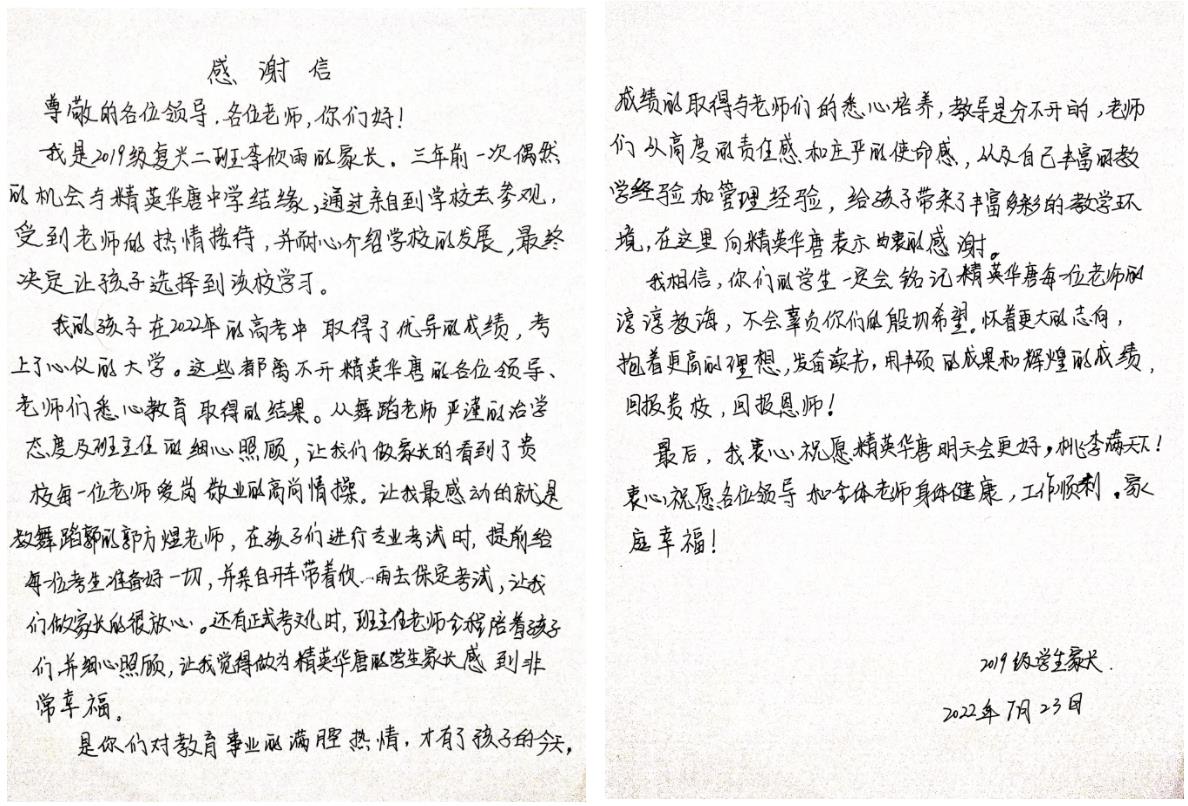 感谢信
尊敬的各位领导,各位老师,你们好!
我是2019级复兴二班李欣雨的家长.三年前一次偶然
的机会与精英华唐中学结缘,通过亲自到学校去参观,
受到老师的热情接待,并耐心介绍学校的发展,最终
决定让孩子选择到该校学习。
我的孩子在2022年的高考中取得了优异的成绩,考
上了心仪的大学。这些都离不开精英华唐的各位领导、
老师们悉心教育取得的结果。从舞蹈老师严谨的治学
态度及班主任的细心照顾,让我们做家长的看到了贵
校每一位老师爱岗敬业的高尚情操。让我最感动的就是
教舞蹈的郭方煜老师,在孩子们进行专业考试时,提前给
每一位考生准备好一切,并亲自开车带着欣雨去保定考试,让我
们做家长的很放心。还有正式考文化时,班主任老师全程陪着孩子
们,并细心照顾,让我觉得做为精英华唐的学生家长感到非
常幸福。
是你们对教育事业的满腔热情,才有了孩子的今天,
成绩的取得与老师们的悉心培养,教导是分不开的,老师
们从高度的责任感和庄严的使命感,以及自己丰富的教
学经验和管理经验,给孩子带来了丰富多彩的教学环
境,在这里向精英华唐表示由衷的感谢。
我相信,你们的学生一定会铭记精英华唐每一位老师的
谆谆教海,不会辜负你们的殷切希望。怀着更大的志向,
抱着更高的理想,发奋读书,用丰硕的成果和辉煌的成绩,
回报贵校,回报恩师!
最后,我衷心祝愿精英华唐明天会更好,桃李满天下!
衷心祝愿各位领导和全体老师身体健康,工作顺利。家
庭幸福!
2019级学生家长.
2022年7月23日